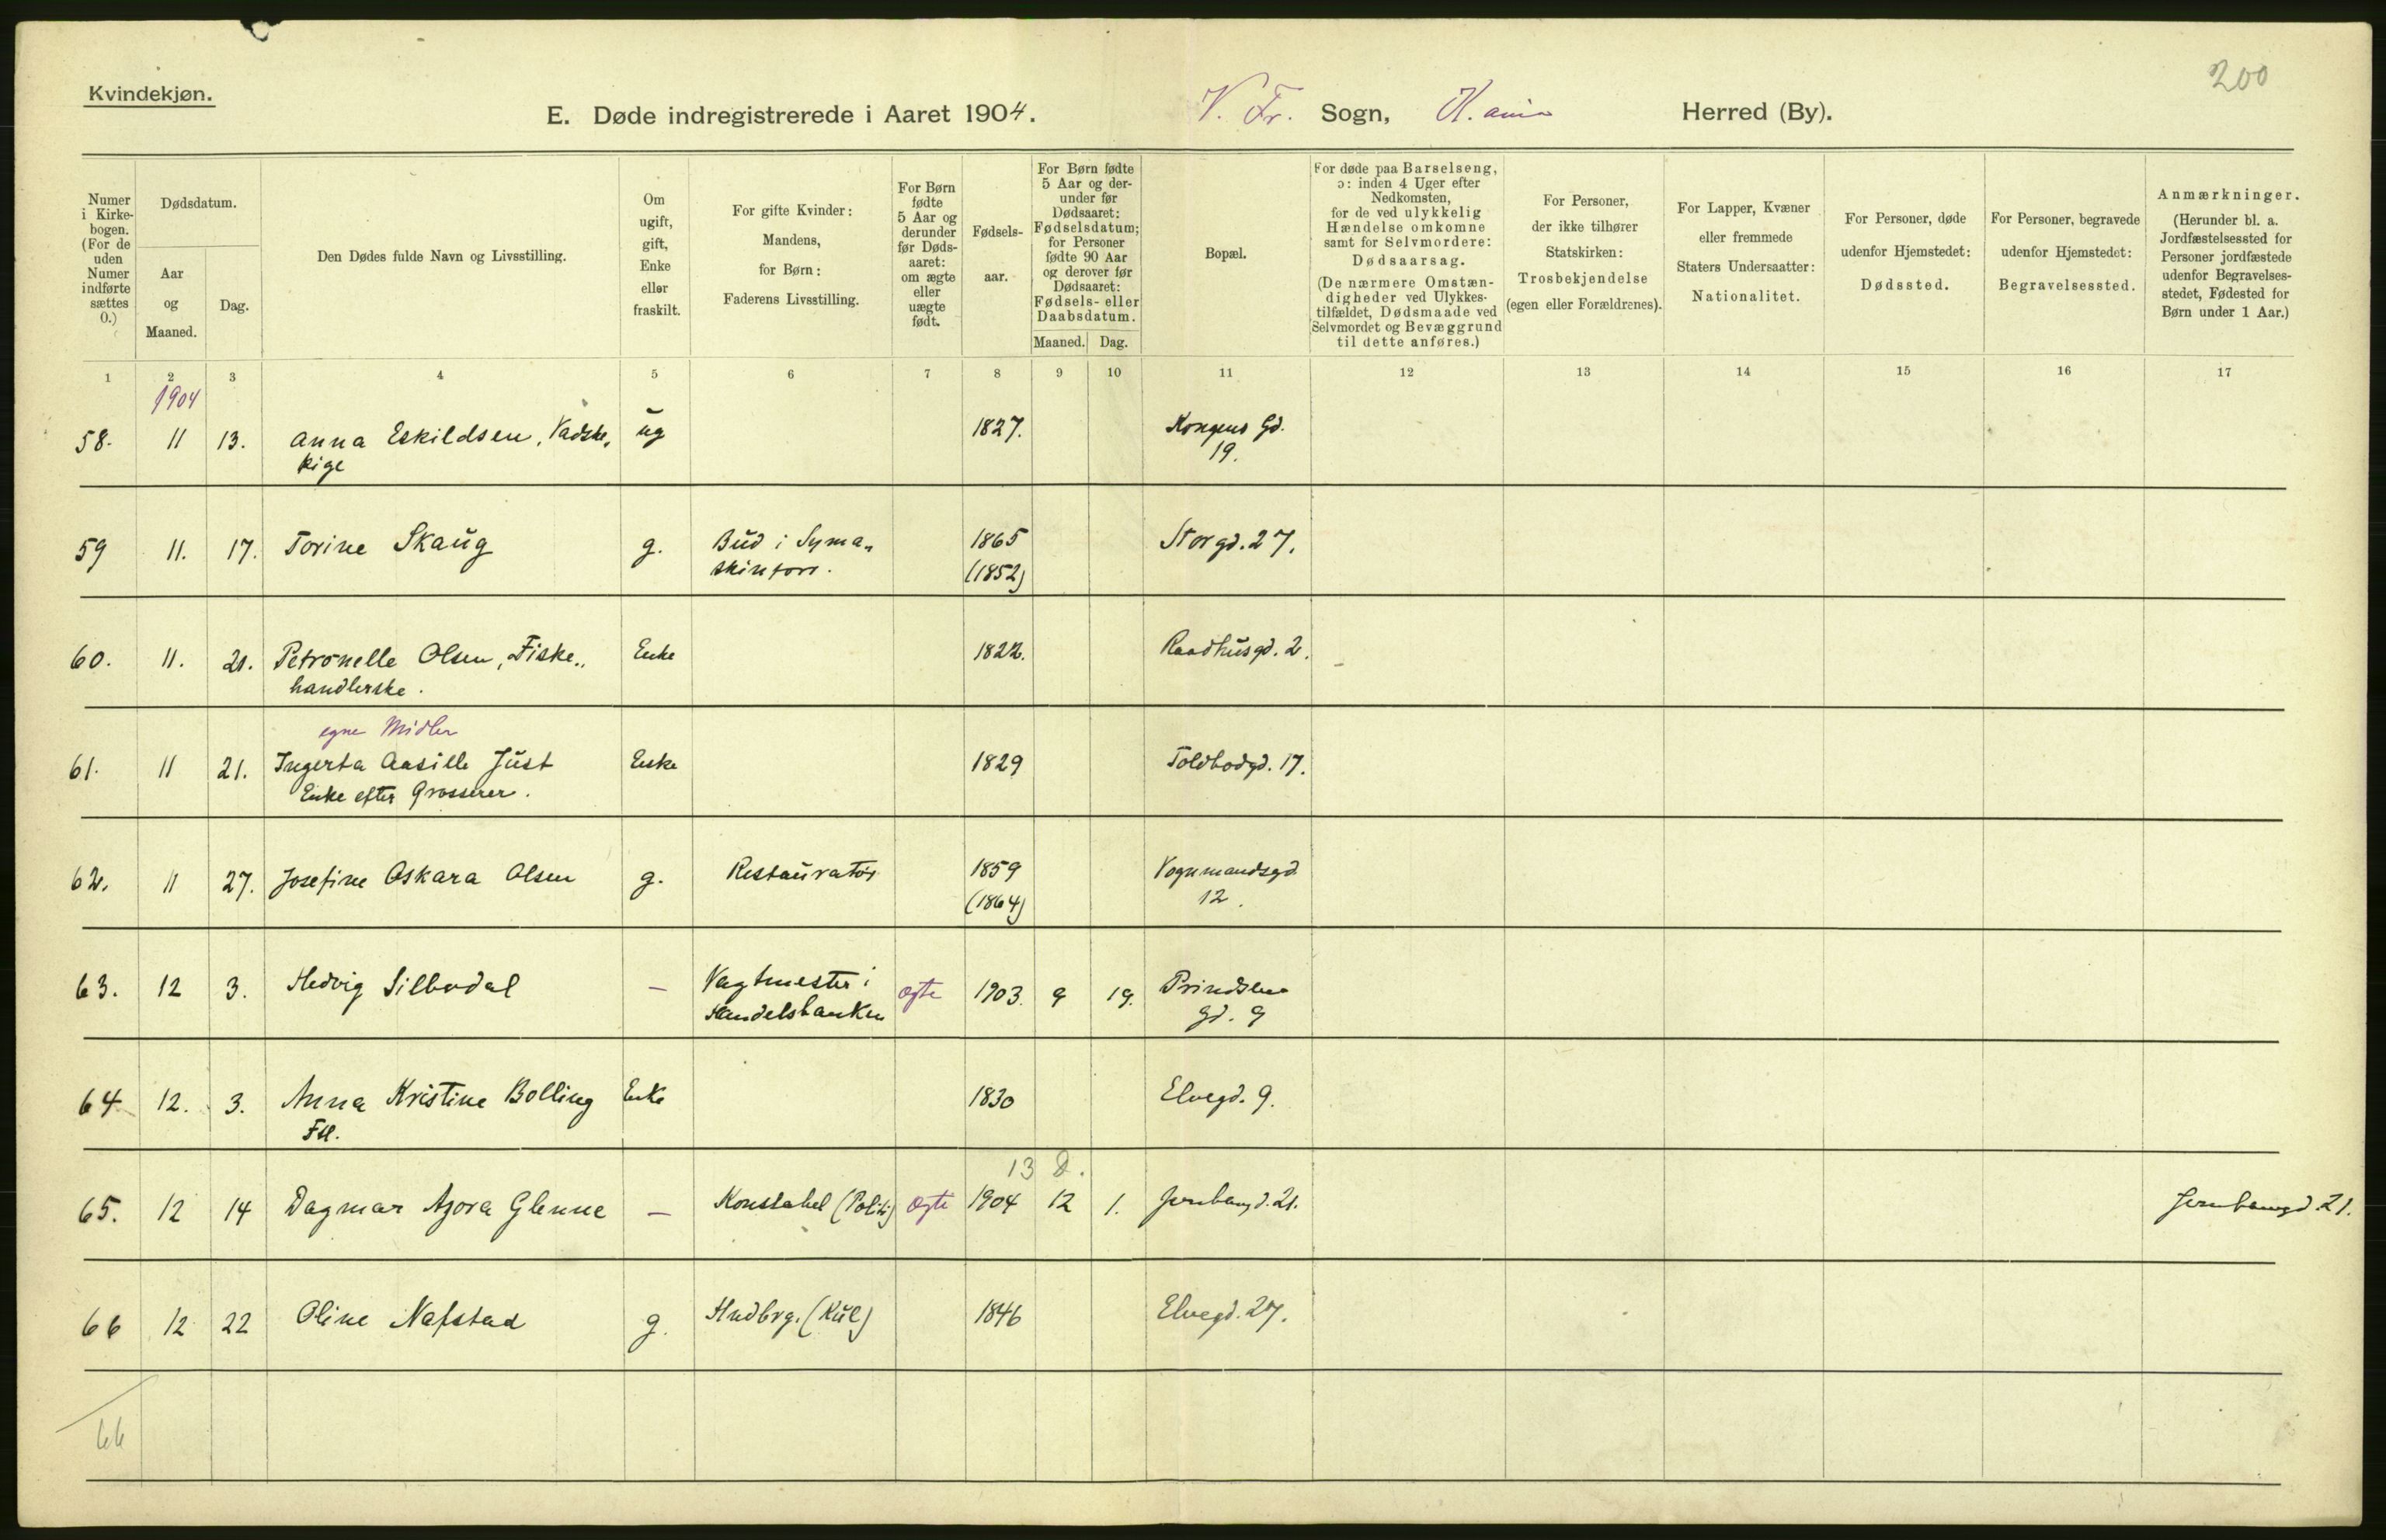 200
Kvindekjøn.
E. Døde indregistrerede i Aaret 1904. V. Fr. Sogn, K.ania Herred (By).
Numer i Kirkebogen. (For de uden Numer indførte sættes 0.)
Dødsdatum.
Aar og Maaned.
Dag.
Den Dødes fulde Navn og Livsstilling.
Om ugift, gift, Enke eller fraskilt.
For gifte Kvinder: Mandens, for Børn: Faderens Livsstilling.
For Børn fødte 5 Aar og derunder før Dødsaaret: om ægte eller uægte født.
Fødselsaar.
For Børn fødte 5 Aar og derunder før Dødsaaret: Fødselsdatum; for Personer fødte 90 Aar og derover før Dødsaaret: Fødsels- eller Daabsdatum.
Maaned. Dag.
Bopæl.
For døde paa Barselseng, ɔ: inden 4 Uger efter Nedkomsten, for de ved ulykkelig Hændelse omkomne samt for Selvmordere: Dødsaarsag.
(De nærmere Omstændigheder ved Ulykkestilfældet, Dødsmaade ved Selvmordet og Bevæggrund til dette anføres.)
For Personer, der ikke tilhører Statskirken: Trosbekjendelse (egen eller Forældrenes).
For Lapper, Kvæner eller fremmede Staters Undersaatter: Nationalitet.
For Personer, døde udenfor Hjemstedet: Dødssted.
For Personer, begravede udenfor Hjemstedet: Begravelsessted.
Anmærkninger. (Herunder bl. a. Jordfæstelsessted for Personer jordfæstede udenfor Begravelsesstedet, Fødested for Børn under 1 Aar.)
1 2 3 4 5 6 7 8 9 10 11 12 13 14 15 16 17
1904
58. 11 13. Anna Eskildsen, Vadske- ug 1827. Kongens Gd.
pige 19.
59 11. 17. Torine Skaug g. Bud i Syma- 1865 Storgd. 27.
skinforr. (1852)
60. 11. 21. Petronelle Olsen, Fiske- Enke 1822. Raadhusgd. 2.
handlerske.
egne Midler
61. 11 21. Ingerta Aasille Just Enke 1829 Toldbodgd. 17.
Enke efter Grosserer.
62. 11 27. Josefine Oskara Olsen g. Restauratør 1859 Vognmandsgd.
(1864) 12.
63. 12 3. Hedvig Silbodal — Vagtmester i ægte 1903. 9 19. Prindsens
Handelsbanken gd. 9
64 12. 3. Anna Kristine Bolling Enke 1830 Elvegd. 9.
Ftl.
13 D.
65. 12 14 Dagmar Azora Glenne — Konstabel (Politi) ægte 1904 12 1. Jernbangd. 21. Jernbangd. 21.
66 12 22 Oline Nafstad g. Hndbrg. (Kul) 1846 Elvegd. 27.
66